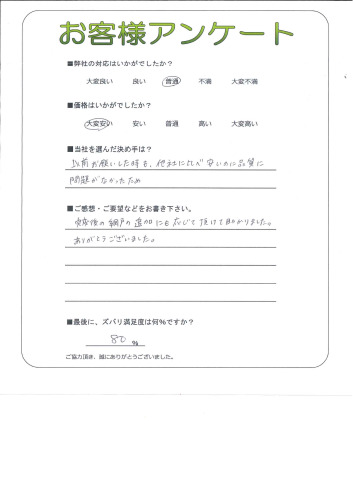 お客様アンケート
■弊社の対応はいかがでしたか？
大変良い 良い 普通 不満 大変不満
■価格はいかがでしたか？
大変安い 安い 普通 高い 大変高い
■当社を選んだ決め手は？
以前お願いした時も、他社に比べ安いのに品質に
問題がなかったため
■ご感想・ご要望などをお書き下さい。
後の網戸の追加にも応じて頂けて助かりました。
ありがとうございました。
■最後に、ズバリ満足度は何%ですか？
80 %
ご協力頂き、誠にありがとうございました。